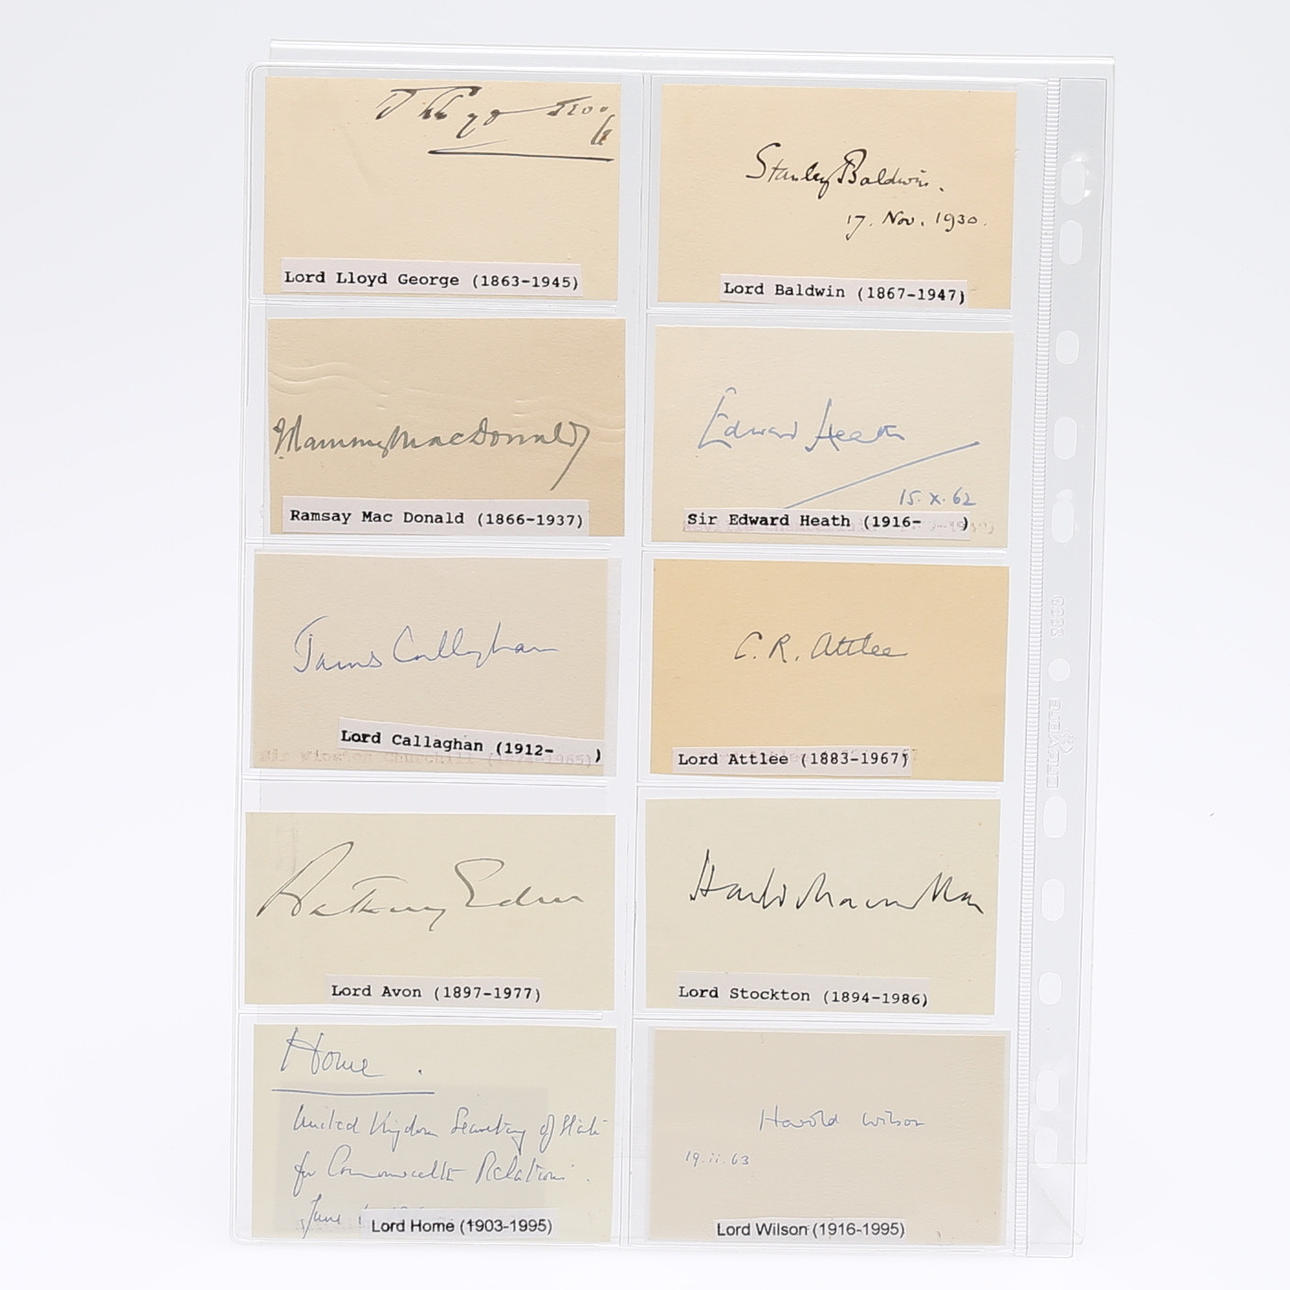 D Lloyd George
Lord Lloyd George (1863-1945)
Stanley Baldwin.
17. Nov. 1930.
Lord Baldwin (1867-1947)
J Ramsay MacDonald
Ramsay Mac Donald (1866-1937)
Edward Heath
15. X. 62
Sir Edward Heath (1916- )
James Callaghan
Lord Callaghan (1912- )
Sir Winston Churchill (1874-1965)
C. R. Attlee
Lord Attlee (1883-1967)
Anthony Eden
Lord Avon (1897-1977)
Harold Macmillan
Lord Stockton (1894-1986)
Home.
United Kingdom Secretary of State
for Commonwealth Relations.
June
Lord Home (1903-1995)
Harold Wilson
19.ii.63
Lord Wilson (1916-1995)